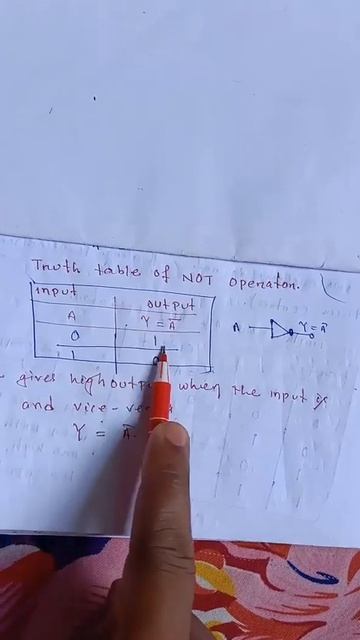 Truth table of NOT operation.
input output
A Y = A̅
0 1
1 0
A Y = a̅
gives high output when the input is
and vice-versa
Y = A̅.